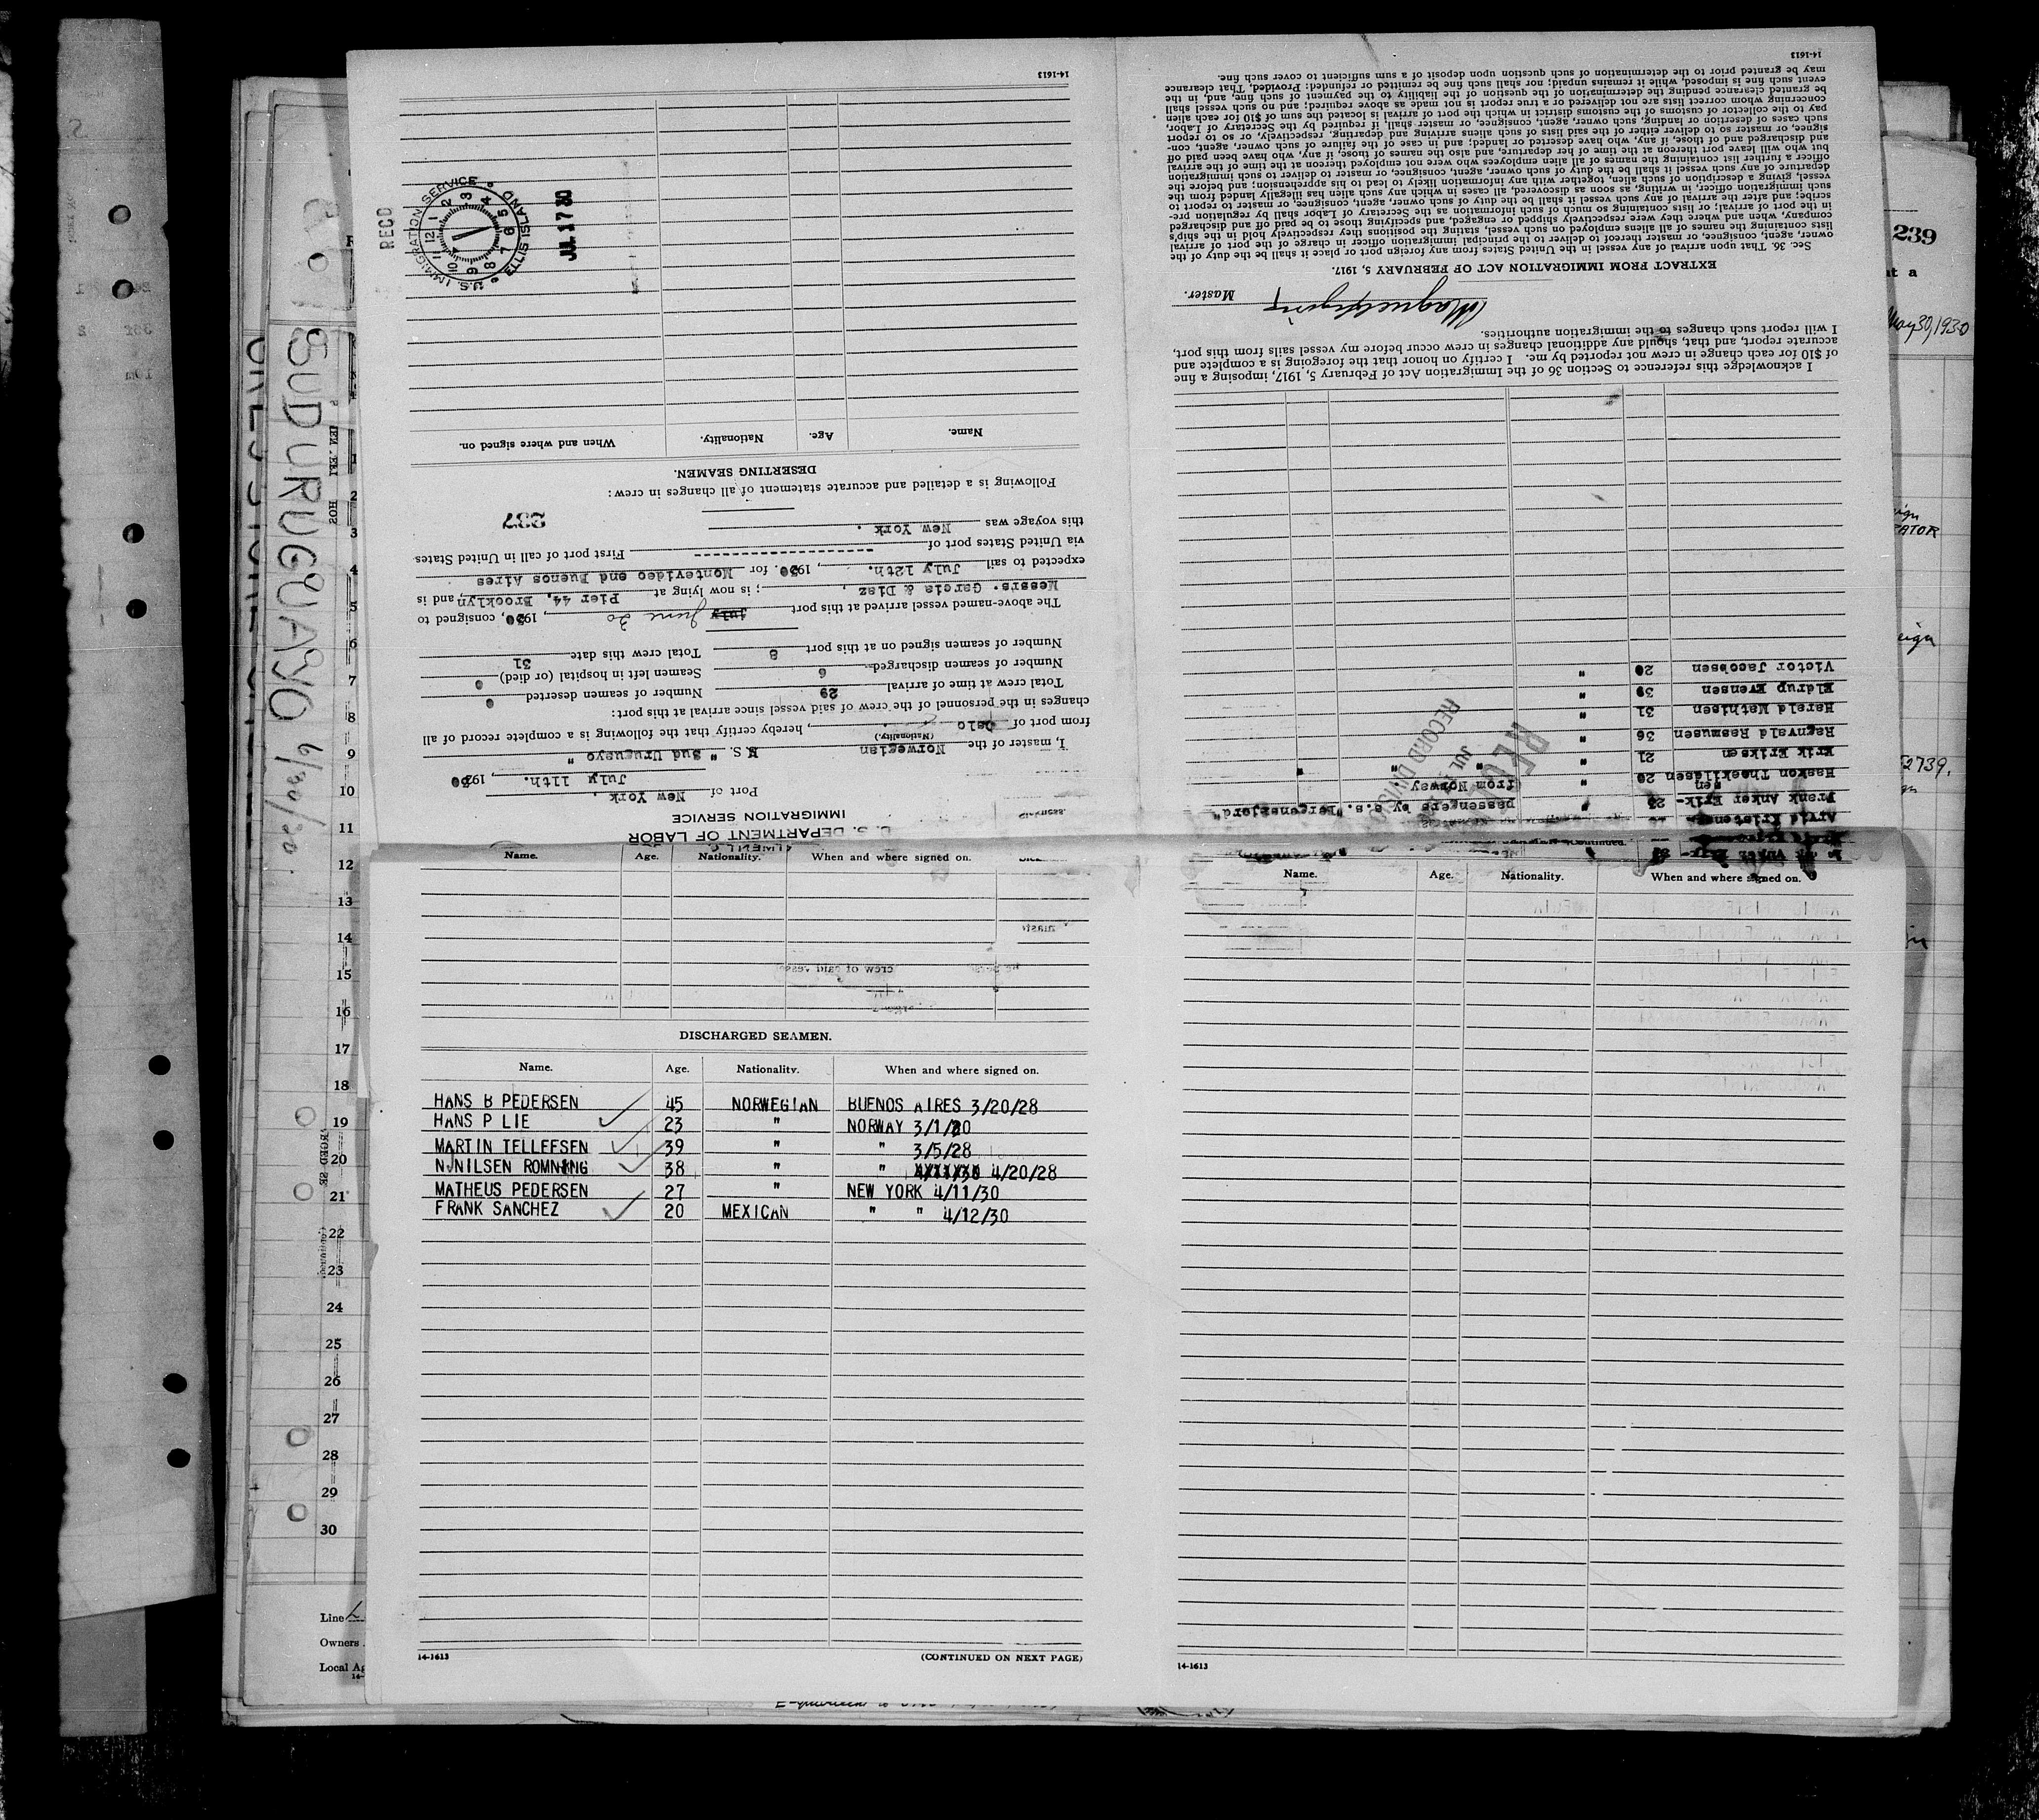 14-1613
U. S. DEPARTMENT OF LABOR
IMMIGRATION SERVICE
Port of New York,
July 11th. , 1930
I, master of the Norwegian M.S. " Sud Uruguayo "
(Nationality.)
from port of Oslo , hereby certify that the following is a complete record of all
changes in the personnel of the crew of said vessel since arrival at this port:
Total crew at time of arrival 29 Number of seamen deserted 0
Number of seamen discharged 6 Seamen left in hospital (or died) 0
Number of seamen signed on at this port 8 Total crew this date 31
The above-named vessel arrived at this port July June 30 , 1930, consigned to
Messrs. Garcia & Diaz , ; is now lying at Pier 44, Brooklyn, and is
expected to sail July 12th. , 1930. for Montevideo and Buenos Aires
via United States port of ---------------- First port of call in United States
this voyage was New York .
237
Following is a detailed and accurate statement of all changes in crew:
DESERTING SEAMEN.
Name. Age. Nationality. When and where signed on.
RECD
U.S. IMMIGRATION SERVICE
ELLIS ISLAND
1 2 3 4 5 6 7 8 9 10 11 12
JUL 17 30
Arvid Kristensen
Frank Anker Erik- 23 " passengers by s.s. "Bergensfjord"
sen from Norway
Haakon Thoekildsen 20 "
Erik Eriksen 21 " " " "
Ragnvald Rasmussen 36 "
Harald Mathisen 31 "
Eldrup Evensen 39 "
Victor Jacobsen 20 "
RECORD DIVISION
I acknowledge this reference to Section 36 of the Immigration Act of February 5, 1917, imposing a fine
of $10 for each change in crew not reported by me. I certify on honor that the foregoing is a complete and
accurate report, and that, should any additional changes in crew occur before my vessel sails from this port,
I will report such changes to the immigration authorities.
Master.
EXTRACT FROM IMMIGRATION ACT OF FEBRUARY 5, 1917.
Sec. 36. That upon arrival of any vessel in the United States from any foreign port or place it shall be the duty of the
owner, agent, consignee, or master thereof to deliver to the principal immigration officer in charge of the port of arrival
lists containing the names of all aliens employed on such vessel, stating the positions they respectively hold in the ship's
company, when and where they were respectively shipped or engaged, and specifying those to be paid off and discharged
in the port of arrival; or lists containing so much of such information as the Secretary of Labor shall by regulation pre-
scribe; and after the arrival of any such vessel it shall be the duty of such owner, agent, consignee, or master to report to
such immigration officer, in writing, as soon as discovered, all cases in which any such alien has illegally landed from the
vessel, giving a description of such alien, together with any information likely to lead to his apprehension; and before the
departure of any such vessel it shall be the duty of such owner, agent, consignee, or master to deliver to such immigration
officer a further list containing the names of all alien employees who were not employed thereon at the time of the arrival
but who will leave port thereon at the time of her departure, and also the names of those, if any, who have been paid off
and discharged and of those, if any, who have deserted or landed; and in case of the failure of such owner, agent, con-
signee, or master so to deliver either of the said lists of such aliens arriving and departing, respectively, or so to report
such cases of desertion or landing, such owner, agent, consignee, or master shall, if required by the Secretary of Labor,
pay to the collector of customs of the customs district in which the port of arrival is located the sum of $10 for each alien
concerning whom correct lists are not delivered or a true report is not made as above required; and no such vessel shall
be granted clearance pending the determination of the question of the liability to the payment of such fine, and, in the
event such fine is imposed, while it remains unpaid; nor shall such fine be remitted or refunded: Provided, That clearance
may be granted prior to the determination of such question upon deposit of a sum sufficient to cover such fine.
14-1613
Name. Age. Nationality. When and where signed on.
DISCHARGED SEAMEN.
Name. Age. Nationality. When and where signed on.
HANS B PEDERSEN 45 NORWEGIAN BUENOS AIRES 3/20/28
HANS P LIE 23 " NORWAY 3/1/30
MARTIN TELLEFSEN 39 " " 3/5/28
N.NILSEN ROMNING 38 " " 4/20/28
MATHEUS PEDERSEN 27 " NEW YORK 4/11/30
FRANK SANCHEZ 20 MEXICAN " " 4/12/30
14-1613 (CONTINUED ON NEXT PAGE)
Name. Age. Nationality. When and where signed on.
14-1613
SUD URUGUAYO 6/30/30
1
2
3
4
5
6
7
8
9
10
11
12
13
14
15
16
17
18
19
20
21
22
23
24
25
26
27
28
29
30
Line
Owners
Local Ag
14-
239
at a
May 30, 1930
2739.